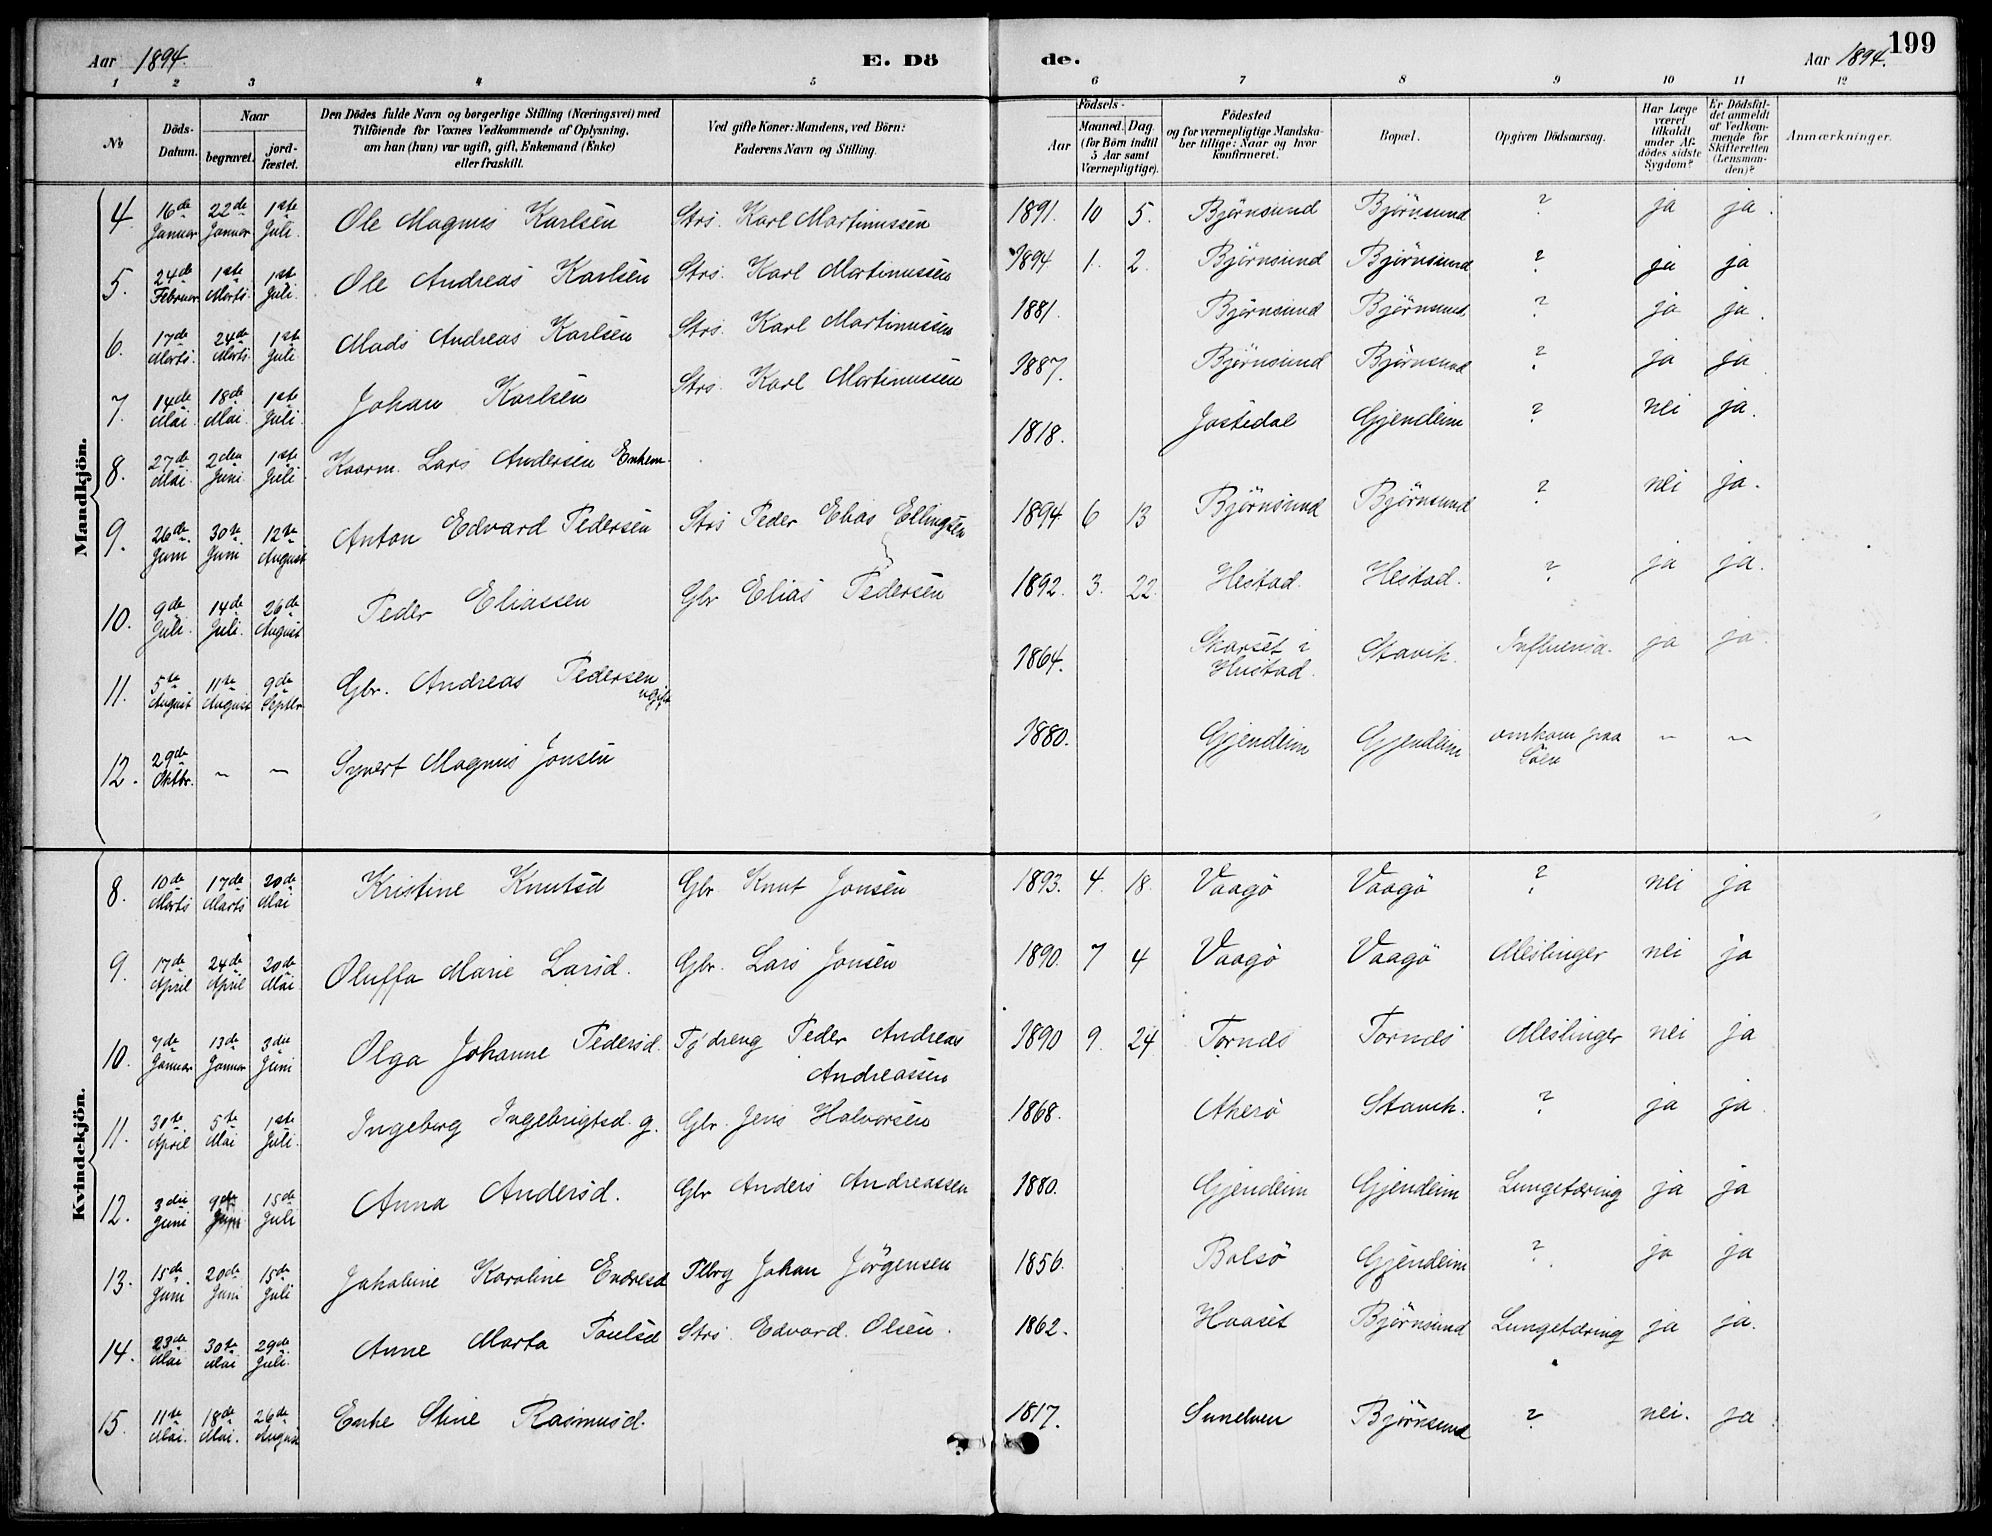 Aar 1894. E. Döde. Aar 1894. 199
1 2 3 4 5 6 7 8 9 10 11 12
No
Döds-Datum.
Naar
begravet. jord-fæstet.
Den Dödes fulde Navn og borgerlige Stilling (Næringsvei) med
Tilföiende for Voxnes Vedkommende af Oplysning,
om han (hun) var ugift, gift, Enkemand (Enke)
eller fraskilt.
Ved gifte Koner: Mandens, ved Börn:
Faderens Navn og Stilling.
Födsels-
Aar Maaned. Dag
(for Börn indtil
5 Aar samt
Værnepligtige).
Födested
og for værnepligtige Mandska-
ber tillige: Naar og hvor
konfirmeret.
Bopæl.
Opgiven Dödsaarsag.
Har Læge
været
tilkaldt
under Af-
dödes sidste
Sygdom?
Er Dödsfal-
det anmeldt
af Vedkom-
mende for
Skifteretten
(Lensman-
den)?
Anmærkninger.
Mandkjön.
4. 16de Januar 22de Januar 1ste Juli. Ole Magnus Karlsen Strs. Karl Martinussen 1891. 10 5. Björnsund Björnsund ? ja ja.
5. 24de Februar 1ste Marts. 1ste Juli. Ole Andreas Karlsen Strs. Karl Martinussen 1894 1. 2. Björnsund Björnsund ? ja ja
6. 17de Marts. 24de Marts 1ste Juli Mads Andreas Karlsen Strs. Karl Martinussen 1881. Björnsund Björnsund ? ja ja.
7. 14de Mai. 18de Mai 1ste Juli. Johan Karlsen Strs. Karl Martinussen 1887. Björnsund Björnsund ? ja ja
8. 27de Mai. 2den Juni 1ste Juli. Kaarm. Lars Andersen Enkem. 1818. Jostedal Gjendeim ? nei ja.
9. 26de Juni 30te Juni 12te August Anton Edvard Pedersen Strs Peder Elias Ellingsen 1894 6 13 Björnsund Björnsund ? nei ja.
10. 9de Juli. 14de Juli. 26de August Peder Eliassen Gbr Elias Pedersen 1892. 3. 22. Hestad. Hestad. ? ja ja.
11. 5te August 11te August 9de Septbr Gbr. Andreas Pedersen ugift 1864. Skarset i Hustad. Stavik. Influensa. ja ja
12. 29de Oktbr. – – Syvert Magnus Jonsen 1880. Gjendeim Gjendeim omkom paa Söen – –
Kvindekjön.
8. 10de Marts 17de Marts 20de Mai Kristine Knutsd Gbr Knut Jonsen 1893. 4. 18. Vaagö Vaagö ? nei ja
9. 17de April 24de April 20de Mai Oluffa Marie Larsd. Gbr. Lars Jonsen 1890. 7 4 Vaagö Vaagö Meslinger nei ja
10. 7de Januar 13de Januar 3die Juni Olga Johanne Pedersd. Tj'dreng Peder Andreas Andreassen 1890 9 24 Tornes Tornes Meslinger nei ja
11. 30te April 5te Mai 1ste Juli. Ingeborg Ingebrigtsd. g. Gbr. Jens Halvorsen 1868. Akerö Stavik. ? ja ja.
12. 3die Juni 9de Juni 15de Juli Anna Andersd. Gbr Anders Andreassen 1880. Gjendeim Gjendeim Lungetæring ja ja
13. 15de Juni 20de Juni 15de Juli Jakobine Karoline Endresd Johan Jörgensen 1856. Bolsö Gjendeim ? ja ja
14. 23de Mai 30te Mai 29de Juli. Anne Marta Poulsd Strs. Edvard Olsen. 1862. Haaset Björnsund Lungetæring ja ja.
15. 11te Mai. 18de Mai. 26de August Enke Stine Rasmusd. 1817. Sunelven Björnsund ? nei. ja